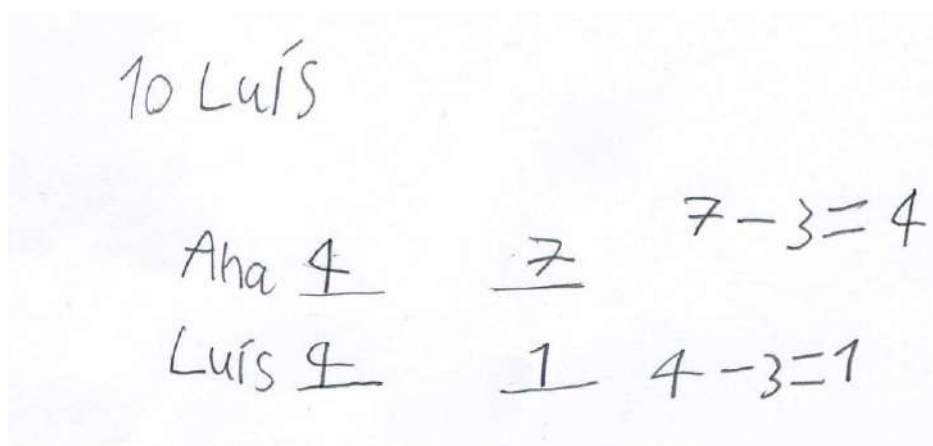 10 Luís
Ana 4 7 7-3=4
Luís 4 1 4-3=1